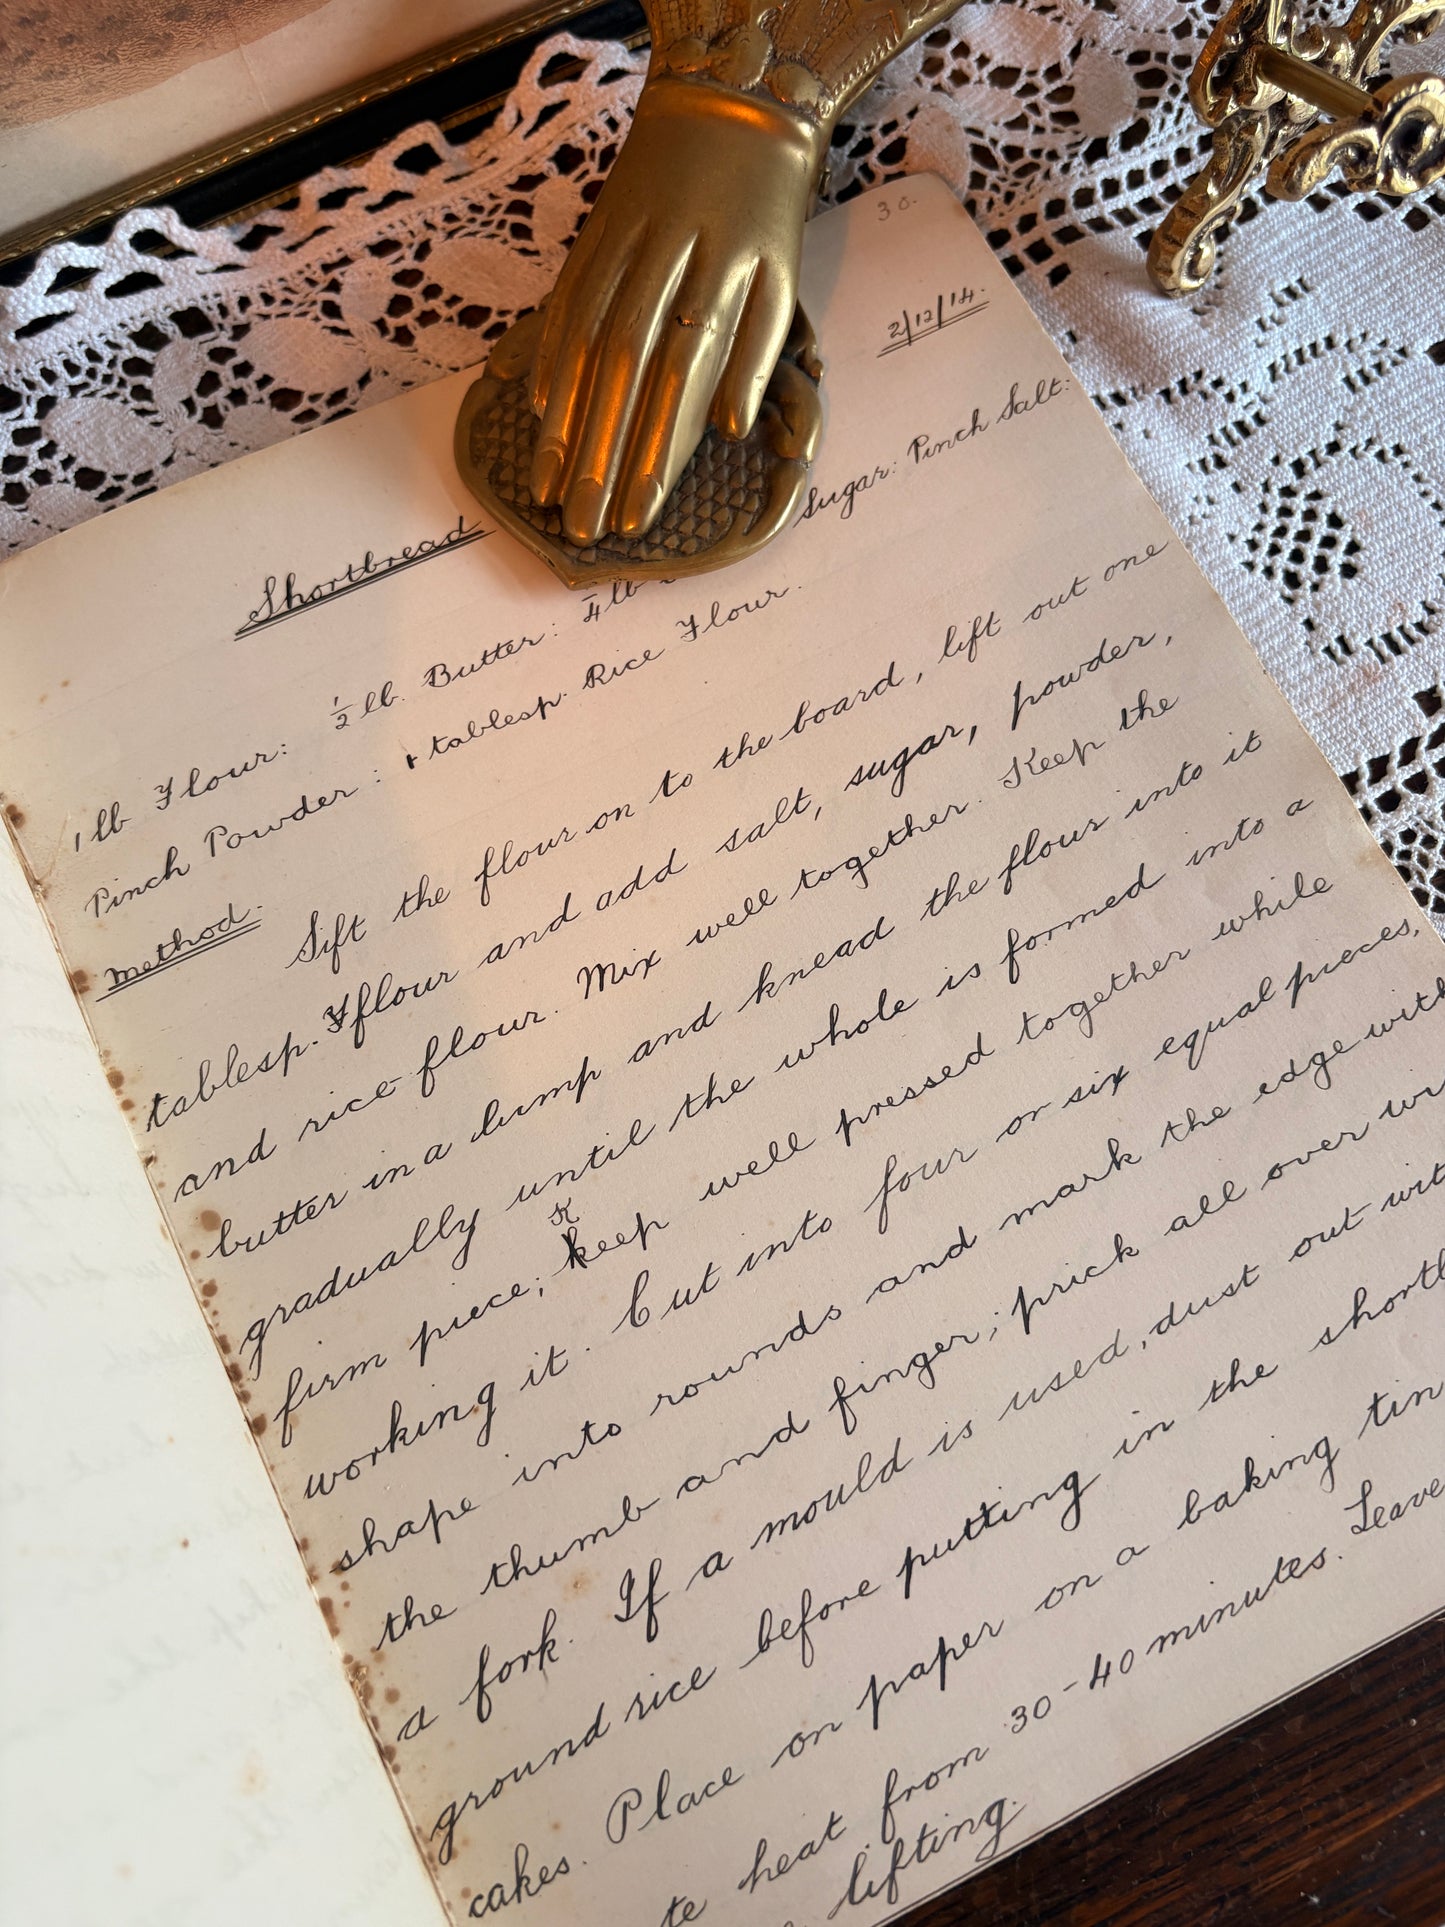 30.
2/12/14.
Shortbread
1 lb Flour: ½ lb. Butter: ¼ lb Sugar: Pinch Salt:
Pinch Powder: 1 tablesp. Rice Flour.
Method. Sift the flour on to the board, lift out one
tablesp. flour and add salt, sugar, powder,
and rice flour. Mix well together. Keep the
butter in a lump and knead the flour into it
gradually until the whole is formed into a
firm piece; Keep well pressed together while
working it. Cut into four or six equal pieces,
shape into rounds and mark the edge with
the thumb and finger; prick all over
a fork. If a mould is used, dust out
ground rice before putting in the
cakes. Place on paper on a baking tin
heat from 30-40 minutes. Leave
lifting.